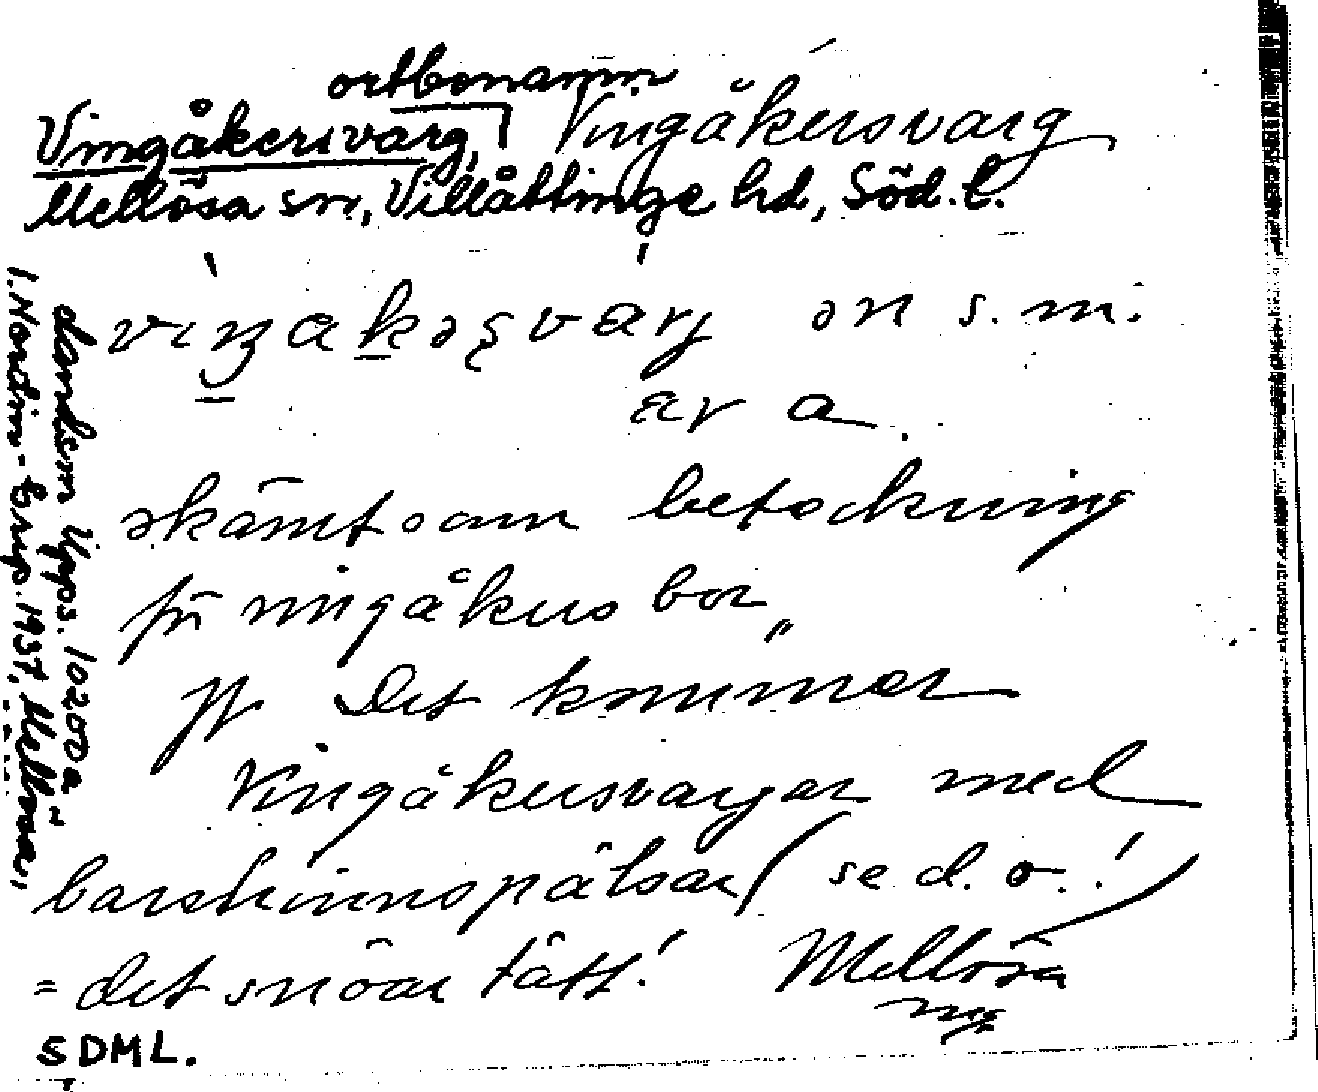 ortbonamn
Vingåkersvarg, Vingåkersvarg
Mellösa sn, Villåttinge hd, Söd.l.
en s. m.
av a
skämtsam beteckning
för vingåkersbor
Jfr Det kommer
Vingåkersvargar med
barskinnspälsar (se d. o.!)
= det snöar tätt! Mellösa
SDML.
Landsm Upps. 10202a
I. Nordin-Grip. 1937, Mellösa,